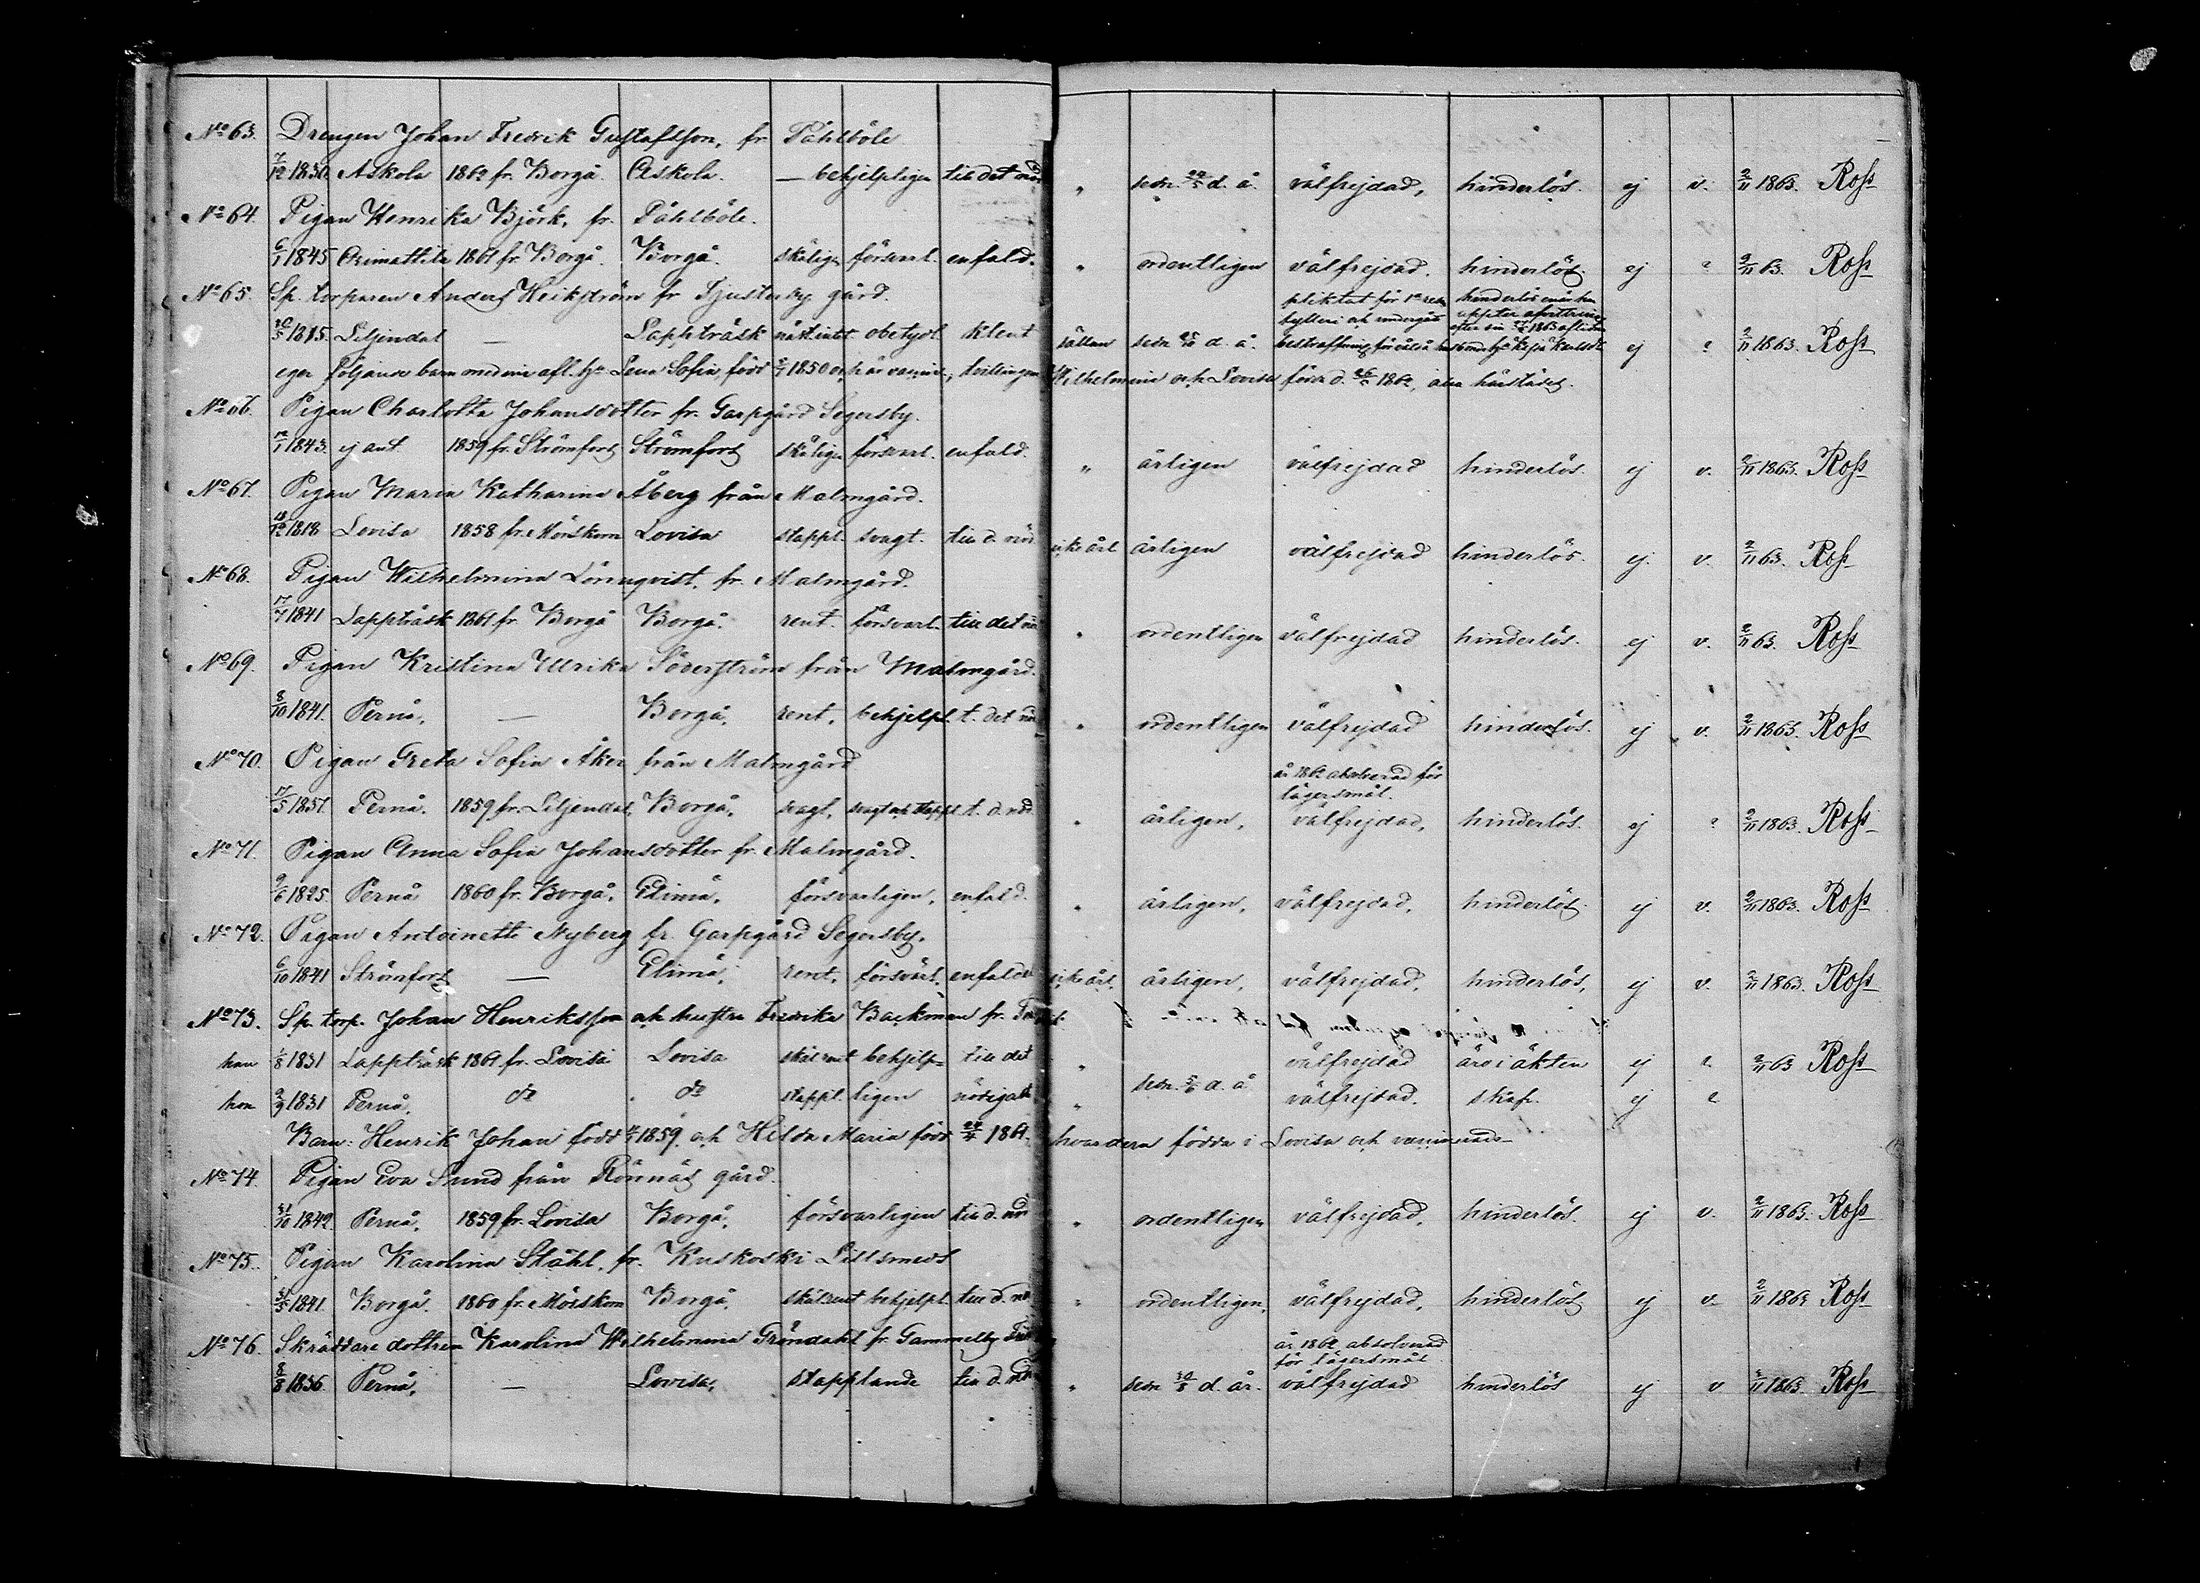 No 63. Drengen Johan Fredrik Gustafsson, fr Påhlböle
7/12 1830 Askola 1862 fr. Borgå. Askola. — behjelpligen till det nöd " sedn. d. å. välfrejdad, hinderlös. ej v. 2/11 1863. Ross
No 64. Pigan Henrika Björk, fr. Påhlböle.
6/1 1845 Orimattila 1861 fr. Borgå. Borgå. skäligen försvarl. enfald. " ordentligen välfrejdad. hinderlös. ej 2/11 63. Ross
No 65. Sp. torparen Anders Heikström fr Tjusterby gård.
pliktat för 1a resan
hinderlös enär han
fylleri och undergått
uppter afvittring
20/5 1815. Liljendal — Lappträsk nästintill obetydl. klent sällan sedn d. å. bestraffning för ej 2/11 1863. Ross
eger följande barn med sin afl. hu Lena Sofia, född 1850 och är vaccinerad, tvillingarne Wilhelmina och Lovisa födda d. 1862, alla härstädes.
No 66. Pigan Charlotta Johansdotter fr. Garpgård Segersby.
12/1 1843. ej ant 1859 fr. Strömfors Strömfors skäligen försvarl. enfald. " årligen välfrejdad hinderlös. ej v. 2/11 1863. Ross
No 67. Pigan Maria Katharina Åberg från Malmgård.
18/12 1818 Lovisa 1858 fr. Mörskom Lovisa stappl. svagt. till d. nöd icke årl årligen välfrejdad hinderlös. ej. v. 2/11 63. Ross
No 68. Pigan Wilhelmina Lönnqvist, fr. Malmgård.
17/7 1841 Lappträsk 1861 fr. Borgå Borgå. rent. försvarl. till det nöd " ordentligen välfrejdad hinderlös. ej v. 2/11 63. Ross
No 69. Pigan Kristina Ulrika Söderström från Malmgård.
8/10 1841. Pernå, — Borgå, rent, behjelpl. t. det nöd " ordentligen välfrejdad hinderlös. ej v. 2/11 1863. Ross
No 70. Pigan Greta Sofia Åker från Malmgård
år 1862 absolverad för
lägersmål.
17/5 1837. Pernå. 1859 fr. Liljendal, Borgå, svagt, svagt och stappl. t. d. nöd " årligen, välfrejdad, hinderlös. ej 2/11 1863. Ross
No 71. Pigan Anna Sofia Johansdotter fr. Malmgård.
9/6 1825. Pernå 1860 fr. Borgå. Elimä. försvarligen, enfald. " årligen, välfrejdad, hinderlös. ej v. 2/11 1863. Ross
No 72. Pigan Antoinette Nyberg fr. Garpgård Segersby.
6/10 1841 Strömfors — Elimä. rent, försvarl. enfaldt icke årl. årligen, välfrejdad, hinderlös, ej v. 2/11 1863. Ross
No 73. Sp. torp. Johan Henriksson och hustru Fredrika Backman fr.
han 1/8 1831 Lappträsk 1861 fr. Lovisa Lovisa skäl rent behjelp= till det " välfrejdad äro i äkten ej 2/11 63 Ross
hon 2/9 1831 Pernå. do do stappl. ligen nödigaste " sedn. d. å välfrejdad. skap. ej
Barn: Henrik Johan född 1859. och Hilda Maria född 1861. hvardera födda i Lovisa och vaccinerade
No 74. Pigan Eva Sund från Rönnäs gård.
31/10 1842 Pernå, 1859 fr. Lovisa Borgå, försvarligen till d. nöd " ordentligen välfrejdad, hinderlös. ej v. 2/11 1863. Ross
No 75. Pigan Karolina Ståhl, fr. Kuskoski Lillsmeds
31/5 1841. Borgå. 1860 fr. Mörskom Borgå, skäl rent behjelpl. till d. nöd " ordentligen, välfrejdad, hinderlös ej v. 2/11 1863 Ross
No 76. Skräddare dottren Karolina Wilhelmina Gröndahl fr. Gammelby
år 1862 absolverad
för lägersmål
8/8 1836. Pernå, — Lovisa, stapplande till d. nöd " sedn d. år. välfrejdad hinderlös ej v 3/11 1863. Ross